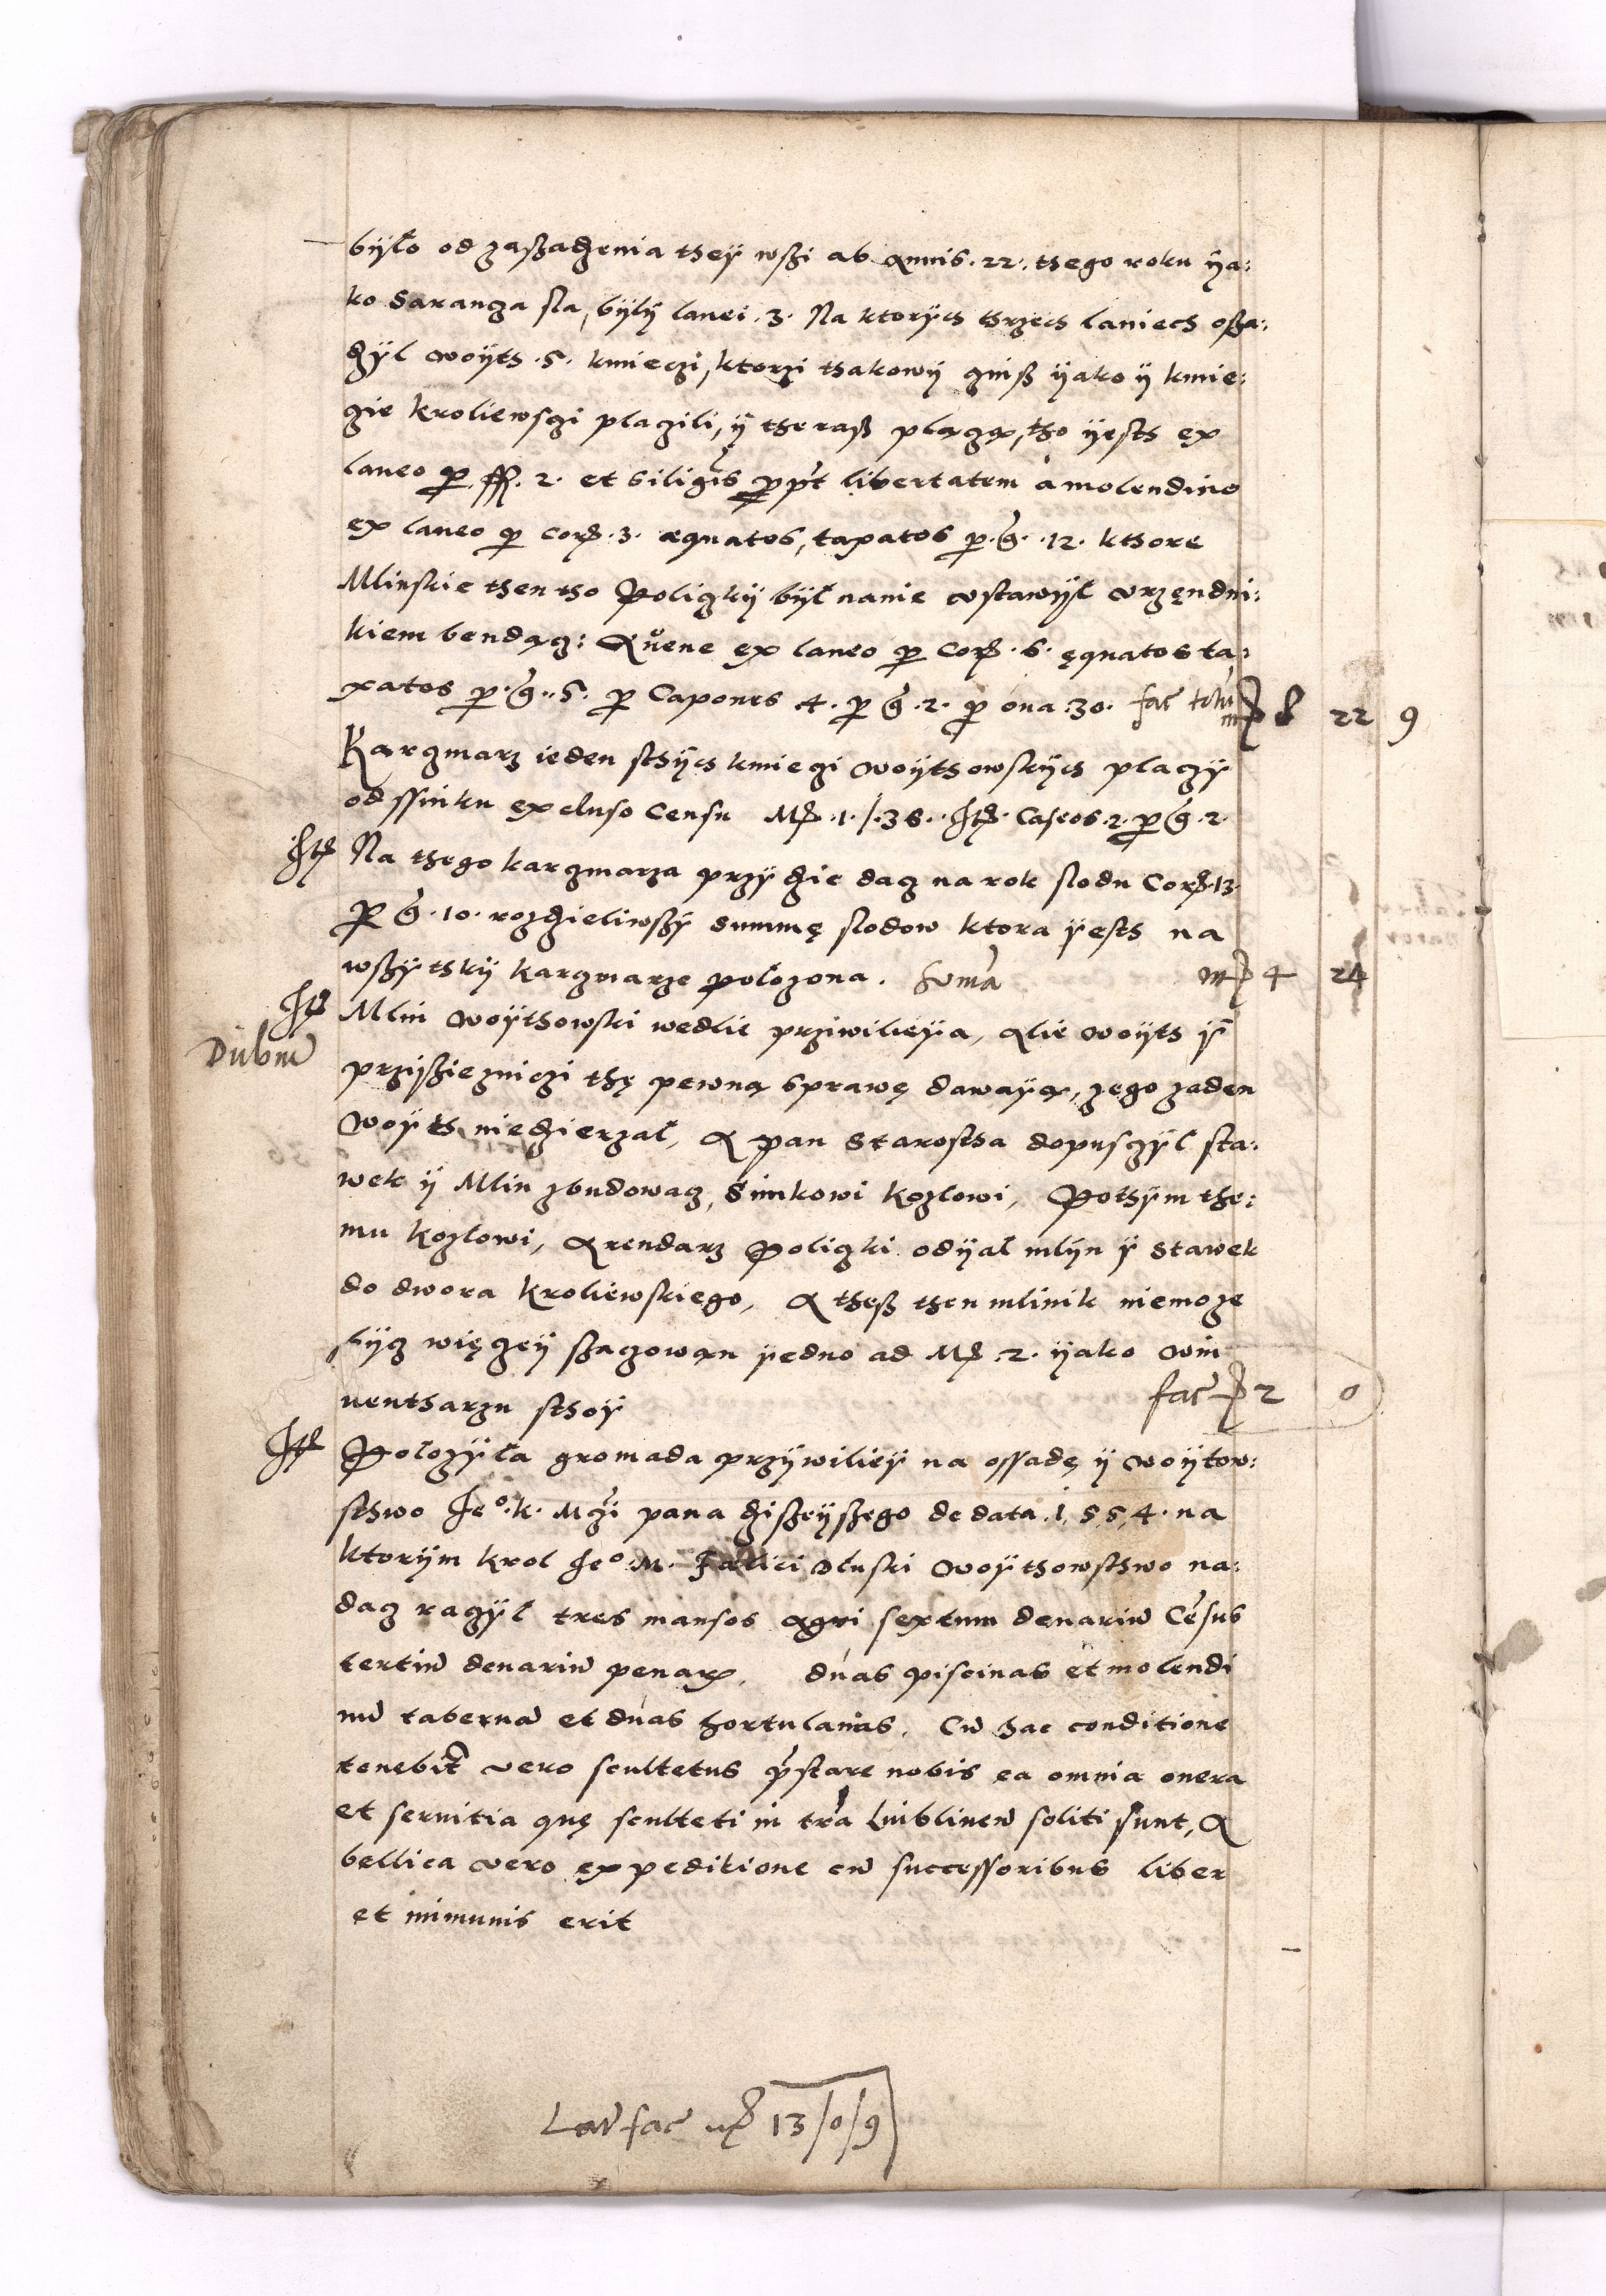 było od zaßadzenia they wßi ab Annis .22. thego roku ÿa:
ko Saranza sla, bÿlÿ lanei .3. Na ktorÿch thrzech laniech oßa:
dzÿl woÿth .5. kmieczi, ktorzi thakowÿ czinß ÿako ÿ kmie:
czie kroliewsczi placzili, ÿ theraß placzą, tho ÿesth ex
laneo per ff. 2. et siliginis propter libertatem a molendino
ex laneo per Cor. 3. æquatos, taxatos per g. 12. kthore
Mlinskie then tho Policzkÿ był nanie vstawÿł vrzędni:
kiem bendącz: Avene ex laneo per Cor. 6. ęquatos ta:
xatos per g. 5. per Capones 4. per g. 2. per ova .30. fac totum
m 8 22 9
Karczmarz ieden sthÿch kmieczi woÿthowskÿch placzÿ
od ssinku excluso Censu M. 1./.36. It. Caseos .2. per g. 2.
It Na thego karczmarza przÿdzie dacz na rok slodu Cor. 13.
per g. 10. rozdzieliwßÿ summę slodow ktora ÿesth na
wßÿtskÿ karczmarze położona. Suma m 4 24
It Mlin woÿthowski wedlie prziwilieÿa, Alie woÿth ÿ
Dubiu
przÿßieznicżi thę pewną sprawę dawaÿą, zego zaden
woÿth niedzierzał, A pan Starostha dopusczÿl sta:
wek ÿ Mlin zbudowacz, Simkowi kozlowi, Pothÿm the:
mu kozlowi, Arendarz Policzki odÿał mlÿn ÿ stawek
do dwora kroliewskiego, A theß then mlinik niemoze
bÿcz więczeÿ ßaczowan ÿedno ad M. 2. ÿako win
uentharzu sthoÿ fac 2 0
It Położÿła gromada przÿwilieÿ na ossadę ÿ woÿtow:
sthwo Je°. k. Mczi pana dzißeÿßego de data .1.5.5.4. na
ktorÿm krol Je° M. Fælici Sluski woÿthowsthwo na:
dacz raczÿl tres mansos agri sextum denariu Cesus
tertiu denariu penarum, duas piscinas et molendi
nu taberna et duas hortulanias. Cu hac conditione
tenebit vero scultetus pstare nobis ea omnia onera
et seruitia quę sculteti in tra Lublinen soliti sunt, A
bellica vero expeditione cu successoribus liber
et immunis erit
Lat fac m 13/0/9